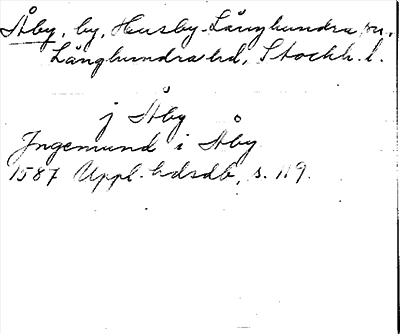 Åby, by, Husby-Långhundra sn,
Långhundra hd, Stockh. l.
j Åby
Jngemund i Åby
1587 Uppl. hdsdb, s. 119.